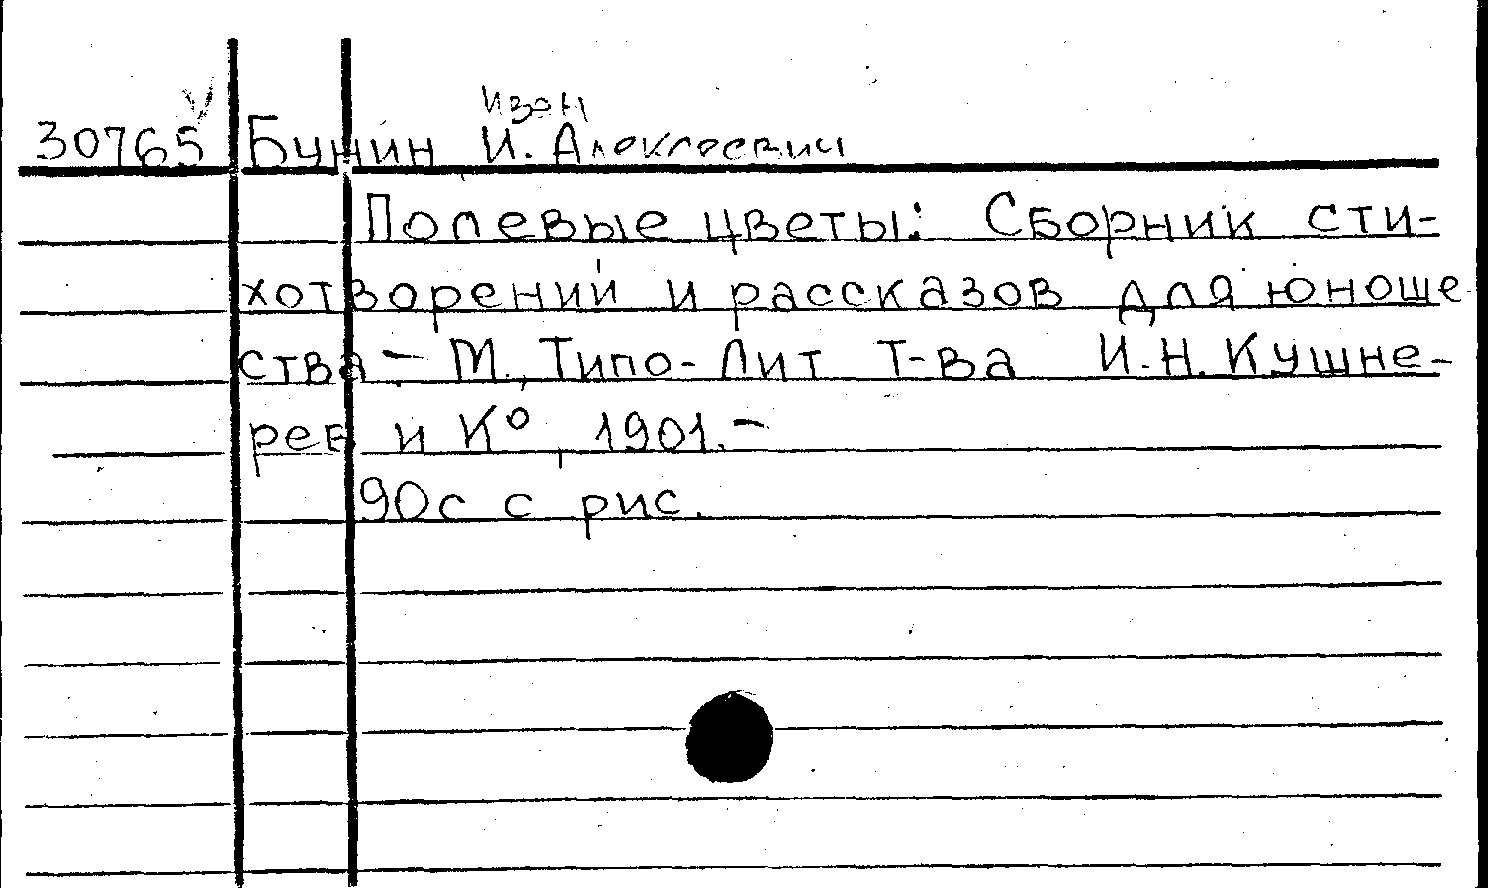 Иван
30765 Бунин И. Алексеевич
Полевые цветы: Сборник сти-
хотворений и рассказов для юноше
ства - М., Типо-Лит Т-ва И.Н. Кушне-
рев и К°, 1901.-
90с с рис.